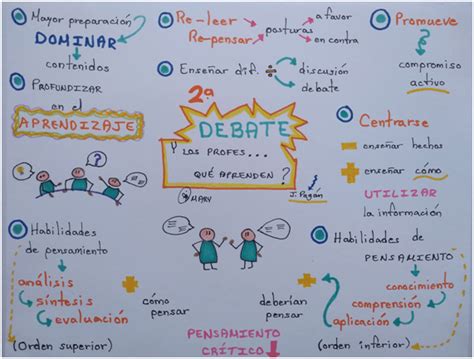 Mayor preparación
DOMINAR
contenidos
PROFUNDIZAR
en el
APRENDIZAJE
Re-leer
Re-pensar
posturas
a favor
en contra
Enseñar dif.
discusión
debate
Promueve
compromiso
activo
2ª
DEBATE
Y LOS PROFES...
QUÉ APRENDEN?
MARY
J. Pagán
Centrarse
enseñar hechos
enseñar cómo
UTILIZAR
la información
?
Habilidades
de pensamiento
análisis
síntesis
evaluación
(Orden superior)
+ cómo
pensar
deberían
pensar
PENSAMIENTO
CRÍTICO
Habilidades de
PENSAMIENTO
conocimiento
comprensión
aplicación
(orden inferior)